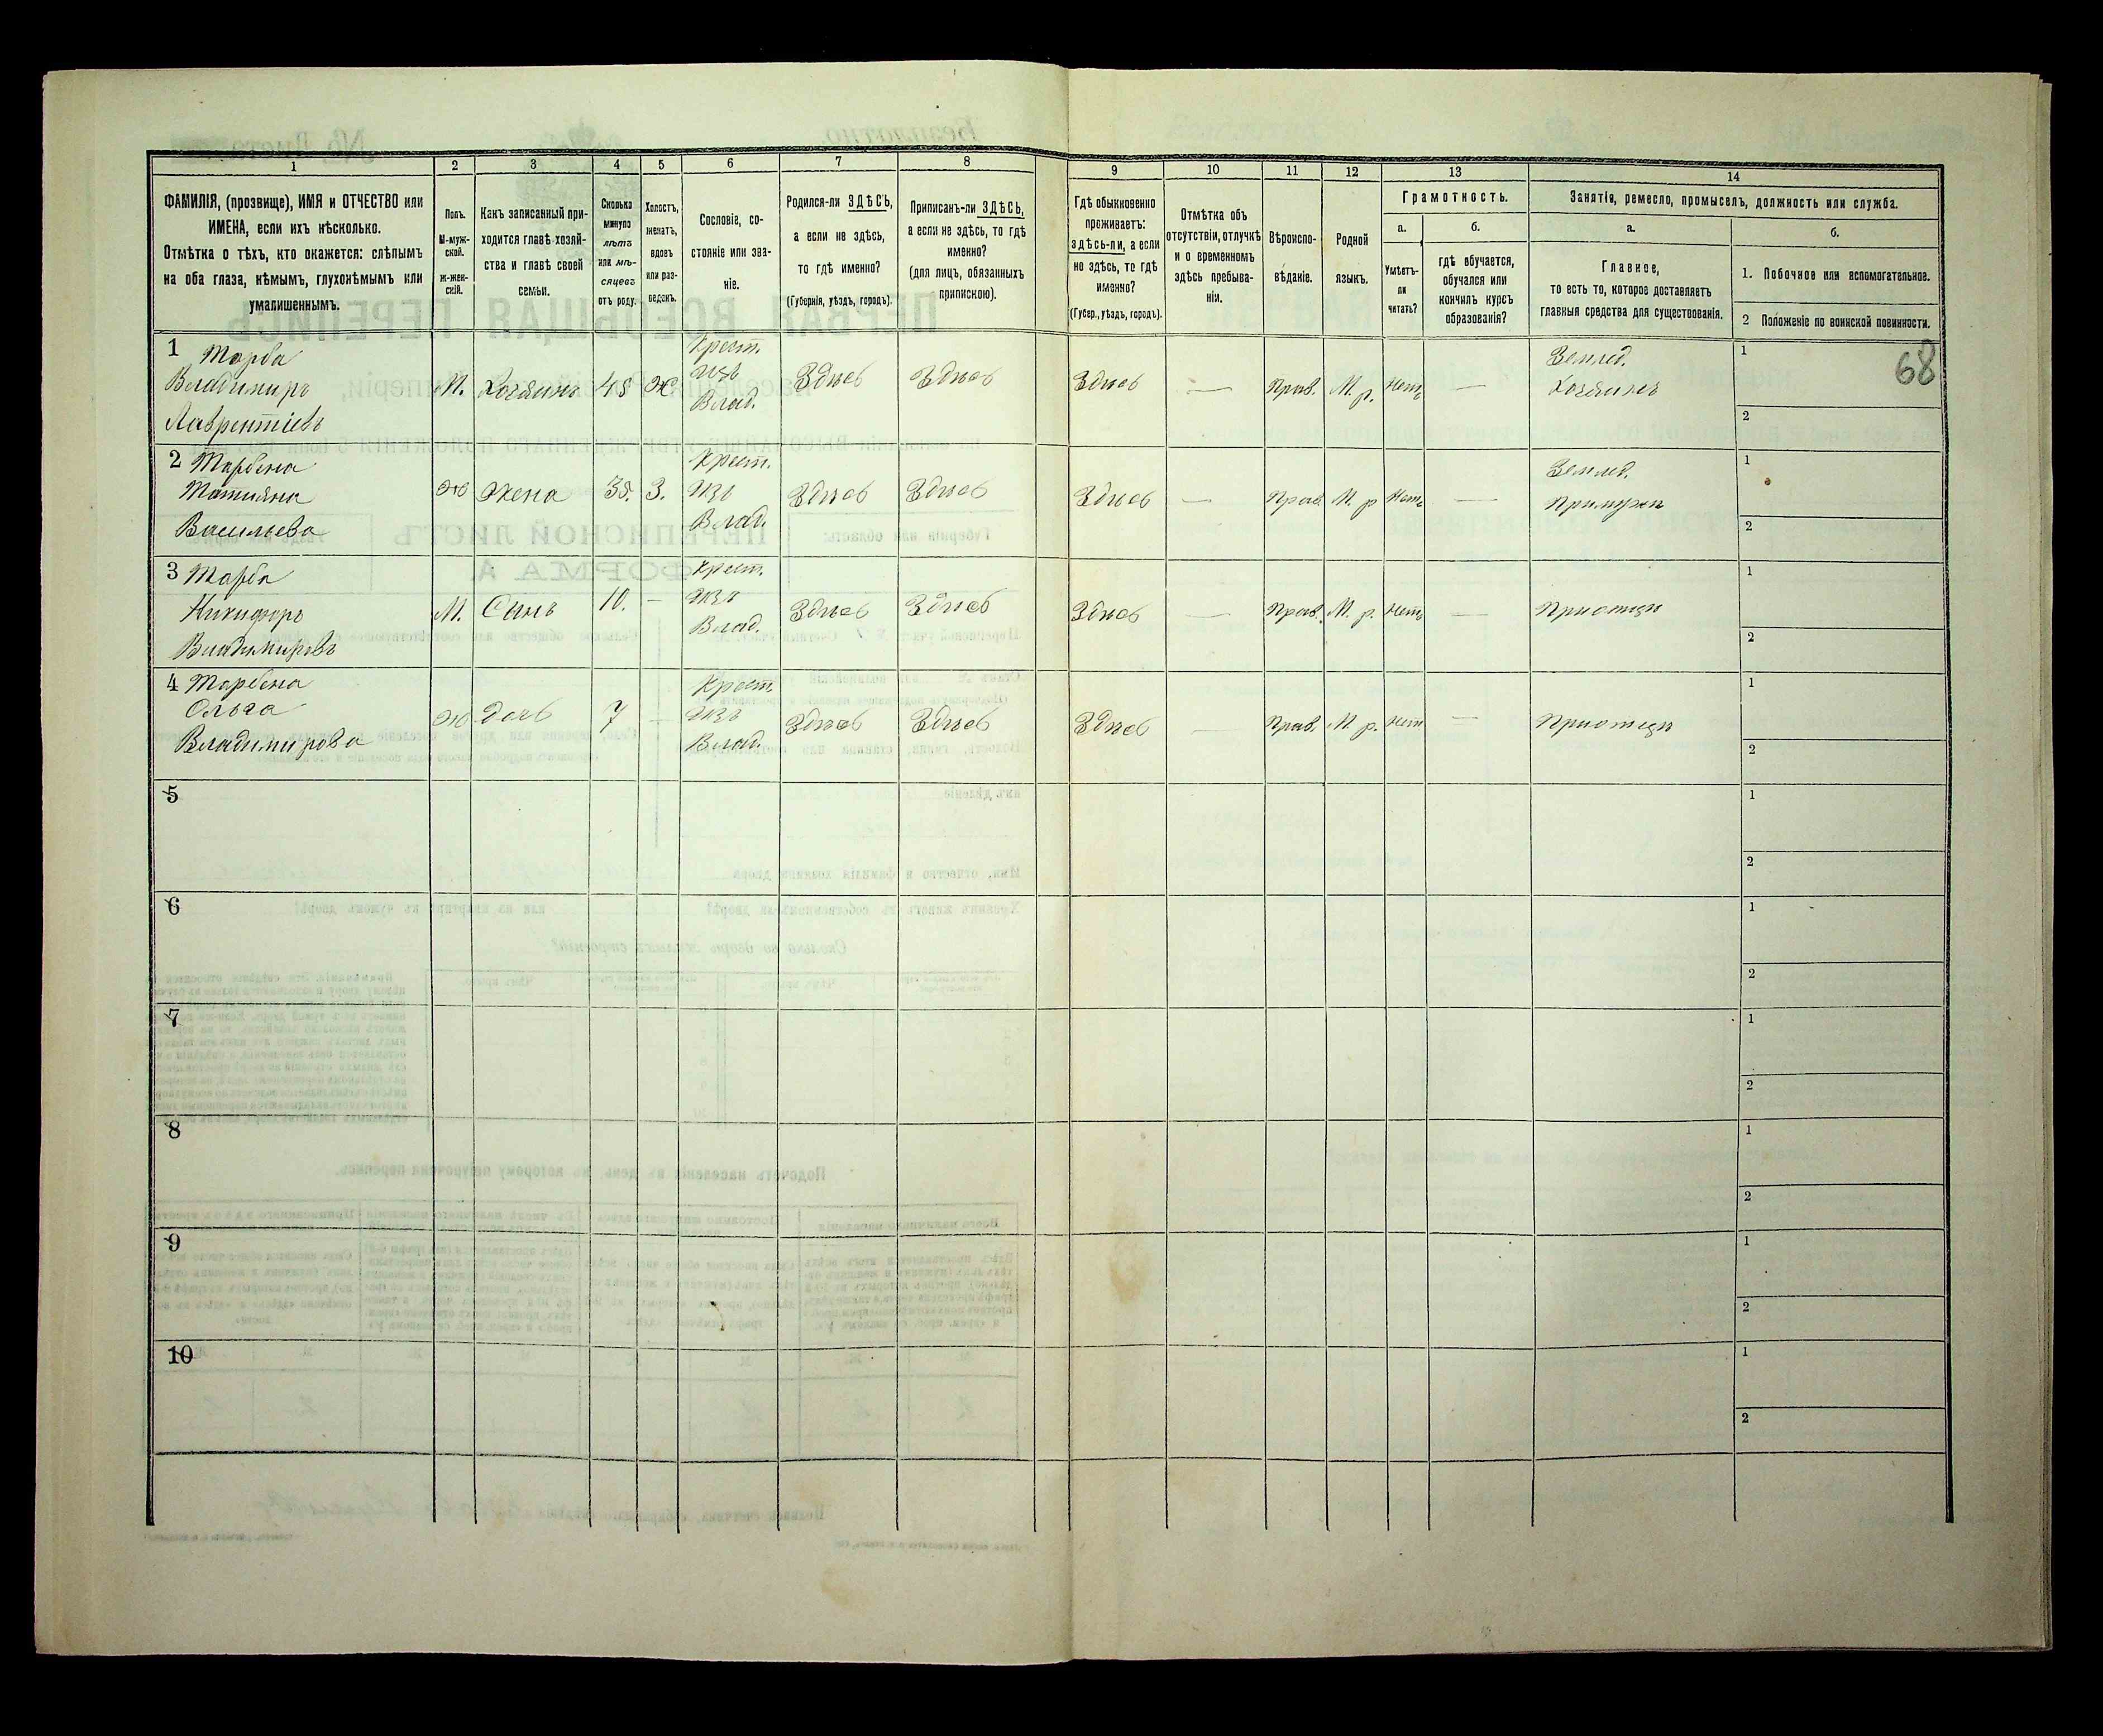 1
2
3
4
5
6
7
8
9
10
11
12
13
14
ФАМИЛІЯ, (прозвище), ИМЯ и ОТЧЕСТВО или
ИМЕНА, если ихъ нѣсколько.
Отмѣтка о тѣхъ, кто окажется: слѣпымъ
на оба глаза, нѣмымъ, глухонѣмымъ или
умалишеннымъ.
Полъ.
М-муж-
ской.
Ж-жен-
скій.
Какъ записанный при-
ходится главѣ хозяй-
ства и главѣ своей
семьи.
Сколько
минуло
лѣтъ
или мѣ-
сяцевъ
отъ роду.
Холостъ,
женатъ,
вдовъ
или раз-
веденъ.
Сословіе, со-
стояніе или зва-
ніе.
Родился-ли ЗДѢСЬ,
а если не здѣсь,
то гдѣ именно?
(Губернія, уѣздъ, городъ).
Приписанъ-ли ЗДѢСЬ,
а если не здѣсь, то гдѣ
именно?
(для лицъ, обязанныхъ
припискою).
Гдѣ обыкновенно
проживаетъ:
здѣсь-ли, а если
не здѣсь, то гдѣ
именно?
(Губер., уѣздъ, городъ).
Отмѣтка объ
отсутствіи, отлучкѣ
и о временномъ
здѣсь пребыва-
ніи.
Вѣроиспо-
вѣданіе.
Родной
языкъ.
Грамотность.
а.
Умѣетъ-
ли
читать?
б.
гдѣ обучается,
обучался или
кончилъ курсъ
образованія?
Занятіе, ремесло, промыселъ, должность или служба.
а.
Главное,
то есть то, которое доставляетъ
главныя средства для существованія.
б.
1. Побочное или вспомогательное.
2 Положеніе по воинской повинности.
68
1
Владимиръ
Лаврентіевъ
М. Хозяинъ 48 Ж
Крест.
изъ
Влад.
Здѣсь Здѣсь Здѣсь — Прав. М. р. Нетъ —
Землед.
Хозяинъ
1
2
2
Татьяна
Васильева
Ж Жена 35. З.
Крест.
изъ
Влад.
Здѣсь Здѣсь Здѣсь — Прав. М. р Нетъ —
Землед.
При мужѣ
1
2
3
Никифоръ
Владимировъ
М. Сынъ 10. —
Крест.
изъ
Влад.
Здѣсь Здѣсь Здѣсь — Прав. М. р. Нетъ —
При отцѣ
1
2
4
Ольга
Владимирова
Ж Дочь 7 —
Крест.
изъ
Влад.
Здѣсь Здѣсь Здѣсь — Прав. М. р. Нет —
При отцѣ
1
2
5
1
2
6
1
2
7
1
2
8
1
2
9
1
2
10
1
2